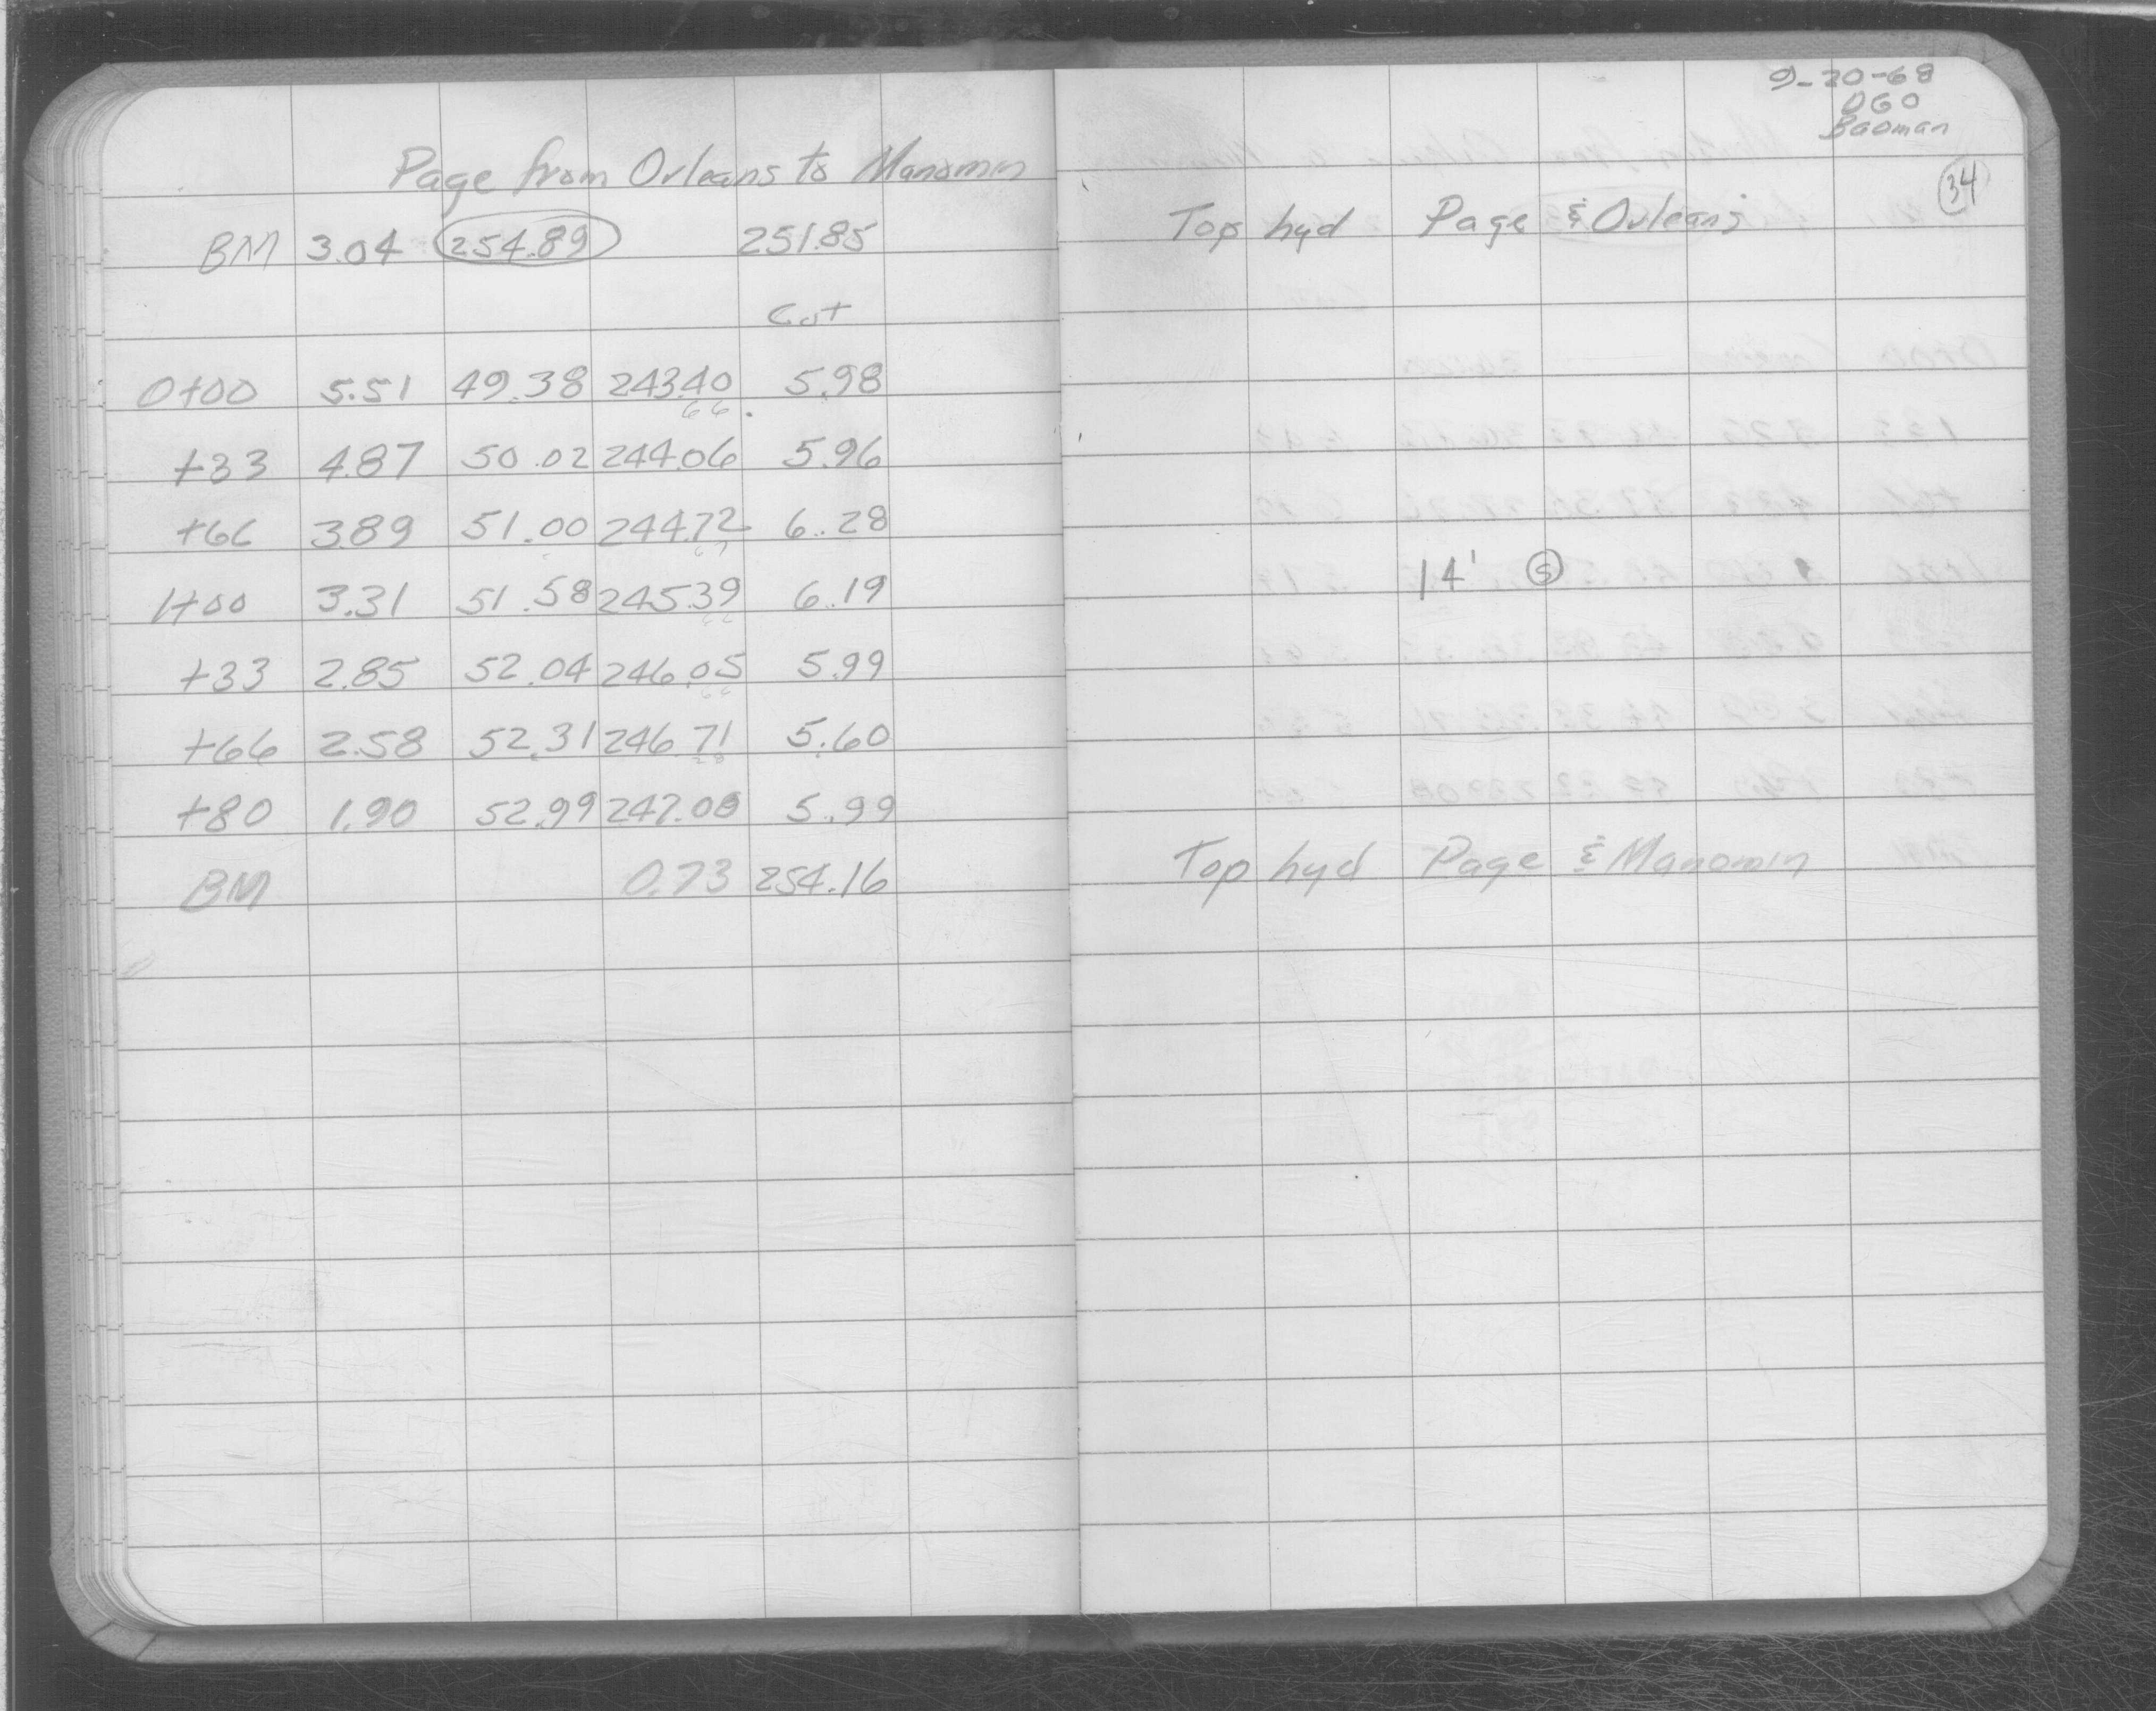 Page from Orleans to Manomin
BM 3.04 254.89 251.85
Cut
0+00 5.51 49.38 243.40 5.98
66
+33 4.87 50.02 244.06 5.96
+66 3.89 51.00 244.72 6.28
67
1+00 3.31 51.58 245.39 6.19
66
+33 2.85 52.04 246.05 5.99
66
+66 2.58 52.31 246.71 5.60
28
+80 1.90 52.99 247.00 5.99
BM 0.73 254.16
9-20-68
OGO
Badman
34
Top hyd Page & Orleans
14' S
Top hyd Page & Manomin